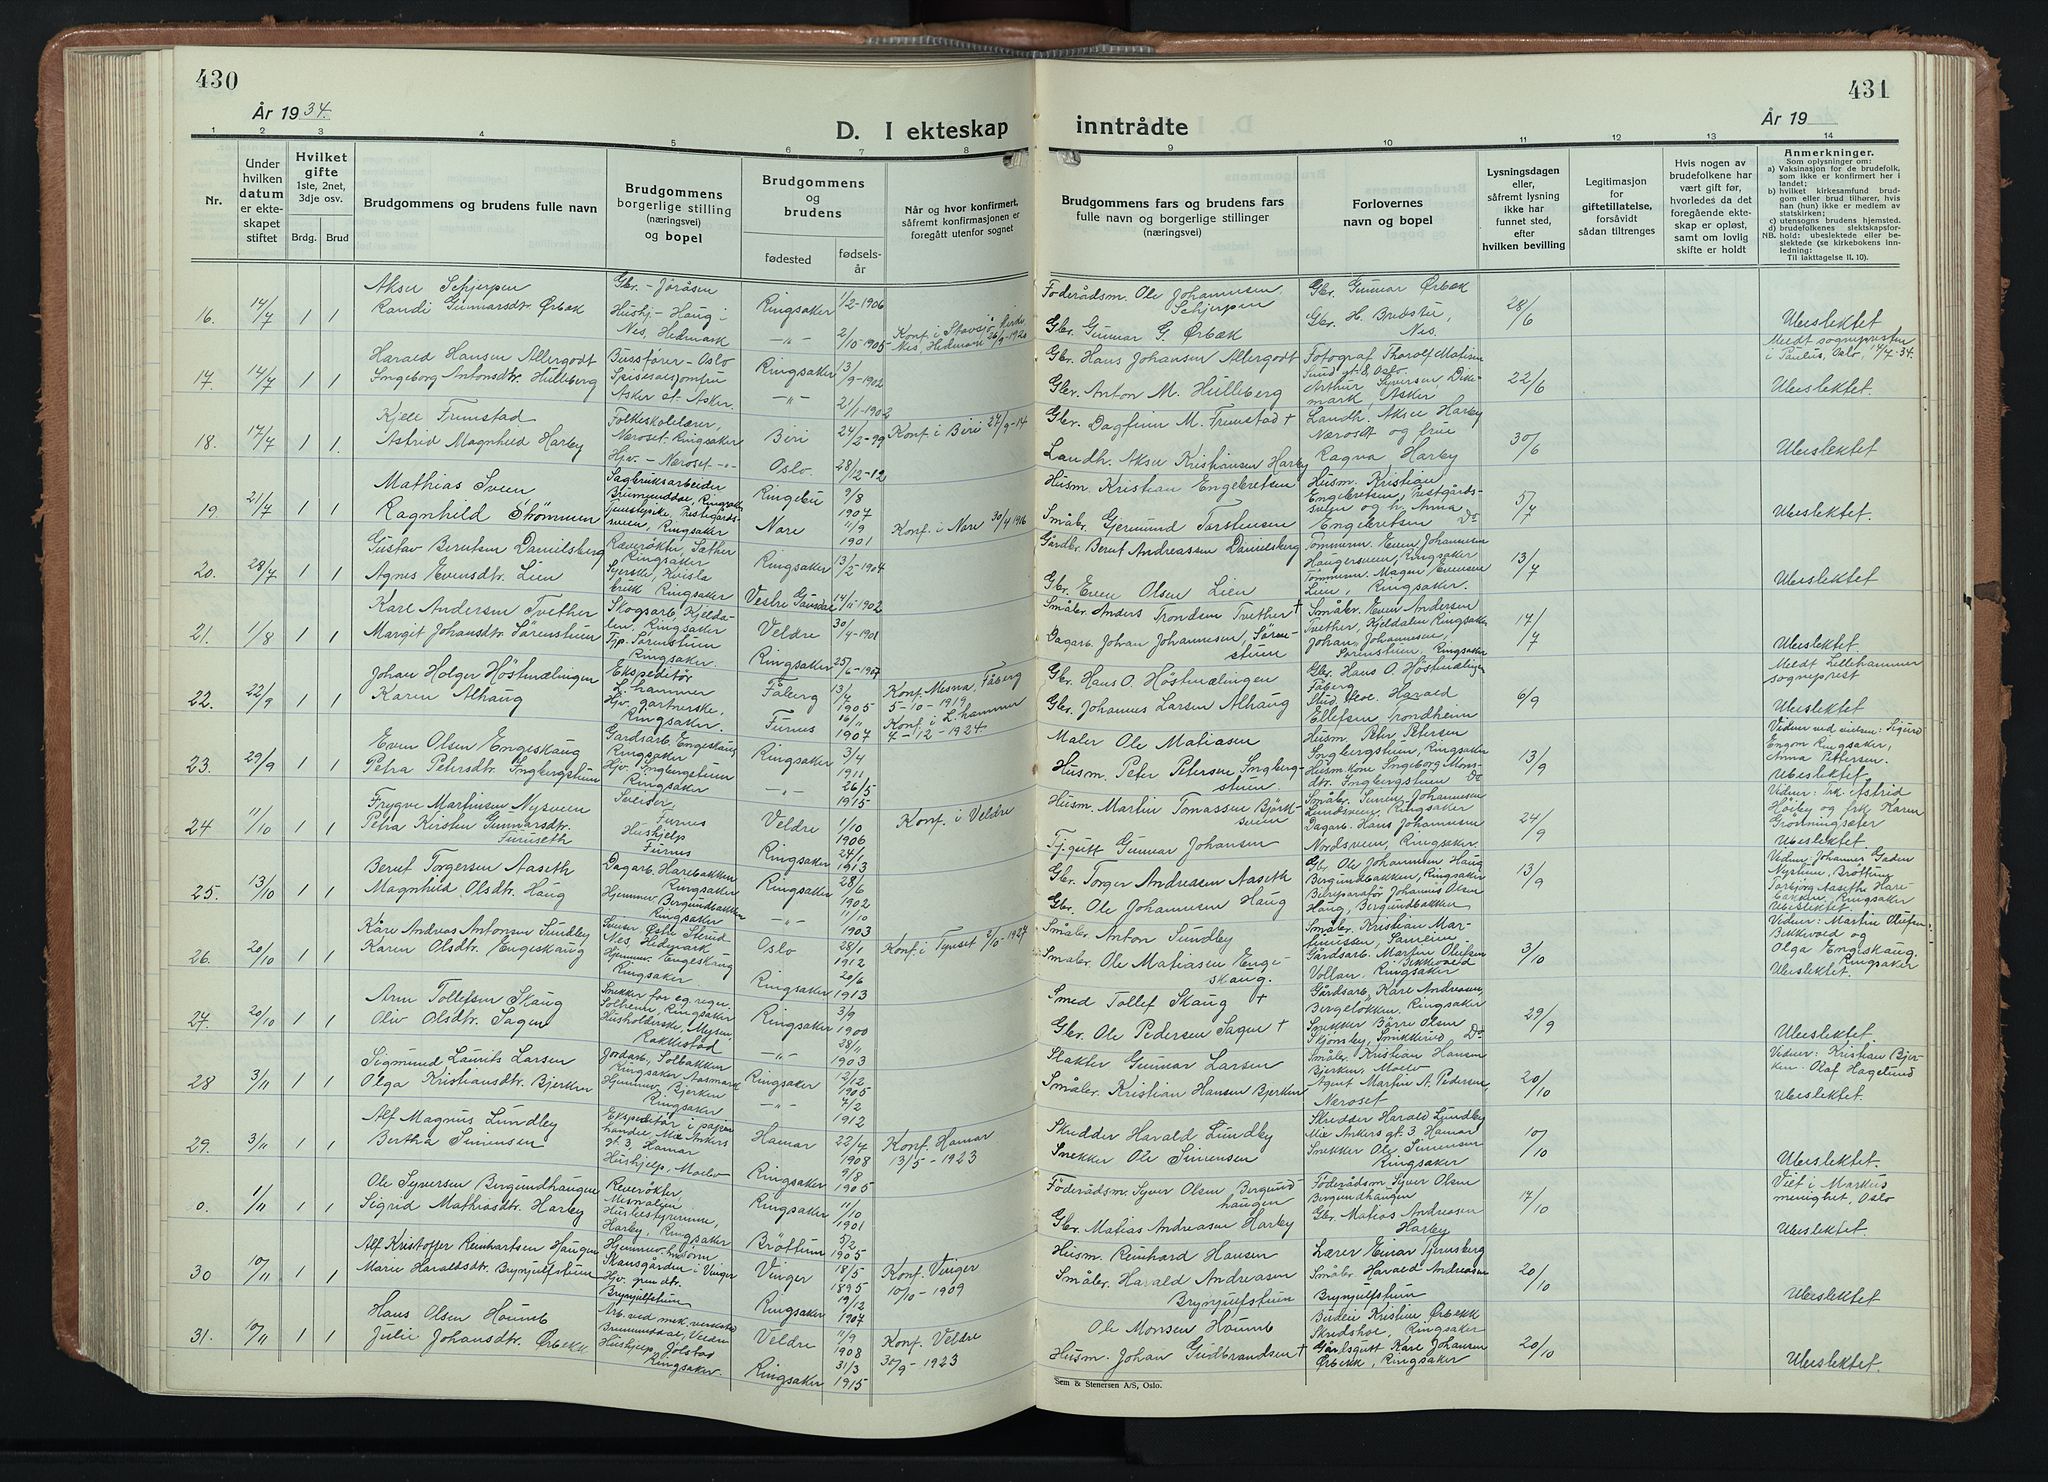 430
År 1934.
D. I ekteskap
1 2 3 4 5 6 7 8
Nr.
Under hvilken datum er ekteskapet stiftet
Hvilket gifte 1ste, 2net, 3dje osv.
Brdg. Brud
Brudgommens og brudens fulle navn
Brudgommens borgerlige stilling (næringsvei) og bopel
Brudgommens og brudens
fødested fødsels-år
Når og hvor konfirmert, såfremt konfirmasjonen er foregått utenfor sognet
16. 14/7 1 1
Aksel Schjerpen
Randi Gunnarsdtr. Ørbæk
Gbr. - Jøråsen
Hushj. - Haug i
Nes, Hedmark
Ringsaker 1/2-1906
-"- 2/10-1905
17. 14/7 1 1
Harald Hansen Allergodt
Ingeborg Antonsdtr. Hulleberg
Bussfører - Oslo
Spisesaljomfru
Asker st. Asker.
Ringsaker 13/9-1902
-"- 21/1-1902
18. 14/7 1 1.
Kjell Fremstad
Astrid Magnhild Harby
Folkeskolelærer,
Næroset, Ringsaker
Hjv. - Næroset -"-
Biri 24/2-99
Konf. i Biri 27/9-14
Oslo. 28/12-12
19. 21/7 1 1
Mathias Sveen
Ragnhild Strømmen
Sagbruksarbeider
Ringebu 9/8 1907
Nore 11/9 1901
Konf. i Nore 30/4 1916
20. 28/7 1 1
Gustav Berntsen Danielsberg
Agnes Evensdtr. Lien
Ringsaker 13/2-1904
Vestre Gausdal 14/11-1902
21. 1/8 1 1
Karl Andersen Tvether
Margit Johansdtr. Sørenstuen
Skogsarb. Kjeldalen, Ringsaker
Ringsaker.
Veldre 30/4-1901
Ringsaker 25/6-1907
22. 22/9 1 1
Johan Holger Höstmælingen
Karen Alhaug
Ekspeditør
L.hammer
Hjv. gartnerske,
Ringsaker.
Fåberg 13/7 1905
Furnes 16/11 1907
Konf. Mesna, Fåberg
5-10-1919
Konf. i L.hammer
4-12-1924.
23. 29/9 1 1
Even Olsen Engeskaug
Petra Petersdtr. Ingbergstuen
Gardsarb. Engeskaug
Ringsaker
Hjv. Ingbergstuen
Ringsaker
Ringsaker 3/4 1911
-"- 26/5 1915
24 11/10 1 1
Trygve Martinsen Nysveen
Petra Kirsten Gunnarsdtr.
Furuseth
Sveiser,
Furnes
Hushjelp
Furnes
Veldre 1/10 1906
Ringsaker 24/1 1913
Konf. i Veldre
25. 13/10 1 1
Bernt Torgersen Aaseth
Magnhild Olsdtr. Haug
Dagarb. Harebakken
Ringsaker
Hjemmev. Bergundbakken
Ringsaker
Ringsaker 28/6 1902
-"- 11/10 1903
26. 20/10 1 1
Kåre Andreas Antonsen Sundby
Karen Olsdtr. Engeskaug
Nes, Hedmark
Hjemmev. Engeskaug
Ringsaker
Oslo 28/1 1912
Ringsaker 20/6 1913
Konf. i Tynset 2/10-1927
27. 20/10 1 1
Arne Tollefsen Skaug
Oliv Olsdtr. Sagen
Snekker for eg. regn.
Solheim, Ringsaker
Husholderske, Mysen,
Rakkestad
Ringsaker 3/9 1900
-"- 28/11 1903
28 3/11 1 1
Sigmund Laurits Larsen
Olga Kristiansdtr. Bjerken
Jordarb. Solbakken
Ringsaker Aasmark
Hjemmev. Bjerken
Ringsaker
Ringsaker 12/12 1905
-"- 4/2 1912
29. 3/11 1 1
Alf Magnus Lundby
Bertha Simensen
Ekspeditør i papir
handel Mix Ankers
gt. 3 Hamar
Hushjelp, Moelv
Hamar 22/4 1908
Ringsaker 9/8 1905
Konf. Hamar
13/5-1923
0. 1/11 1 1
Ole Syversen Bergundhaugen
Sigrid Mathiasdtr. Harby
Reverøkter,
Mesnalien
Husbestyrerinne,
Harby, Ringsaker
Ringsaker 11/10 1901
Brøttum 5/2 1905
30 10/11 1 1
Alf Kristoffer Reinhartsen Haugen
Marie Haraldsdtr. Brynjulfstuen
Skansgården i Vinger
Brynjulfstuen
Vinger 18/5 1895
Ringsaker 19/12 1907
Konf. Vinger
10/10-1909
31. 10/11 1 1
Hans Olsen Houmb
Julie Johansdtr. Ørbekk
Arb. ved mek. verksted
Brumunddal, Veldre
Hushjelp, Jølstad
Ringsaker.
Veldre 11/9 1908
Ringsaker 31/3 1915
Konf. Veldre
30/9-1923
431
inntrådte
År 19
9 10 11 12 13 14
Brudgommens fars og brudens fars fulle navn og borgerlige stillinger (næringsvei)
Forlovernes navn og bopel
Lysningsdagen eller, såfremt lysning ikke har funnet sted, efter hvilken bevilling
Legitimasjon for giftetillatelse, forsåvidt sådan tiltrenges
Hvis nogen av brudefolkene har vært gift før, hvorledes da det foregående ekteskap er opløst, samt om lovlig skifte er holdt
Anmerkninger.
Som oplysninger om:
a) Vaksinasjon for de brudefolk, som ikke er konfirmert her i landet;
b) hvilket kirkesamfund brudgom eller brud tilhører, hvis han (hun) ikke er medlem av statskirken;
c) utensogns brudens hjemsted.
d) brudefolkenes slektskapsforhold: ubeslektede eller beslektede (se kirkebokens innledning:
NB.
Til iakttagelse II. 10).
Föderådsm. Ole Johannesen
Schjerpen
Gbr. Gunnar G. Ørbæk
Gbr. Gunnar Ørbæk
Gbr. H. Brudstu,
Nes.
28/6
Ubeslektet
Gbr. Hans Johansen Allergodt
Gbr. Anton M. Hulleberg
Fotograf Thorolf Matisen
Sund gt. 8, Oslo
Arthur Syversen Dikemark, Asker
22/6
Meldt sogneprest
i Paulus, Oslo, 14/7-34.
Ubeslektet
Gbr. Dagfinn M. Fremstad +
Landh. Aksel Kristiansen Harby
Landh. Aksel Harby
Næroset og frue
Ragna Harby
30/6
Ubeslektet
Husm. Kristian Engebretsen
Småbr. Gjermund Torstensen
Husm. Kristian
Engebretsen, Prestgårdsveen og h. Anna
Engebretsen Do
5/7
Ubeslektet.
Gårdbr. Bernt Andreassen Danielsberg
Gbr. Even Olsen Lien
Tømmerm. Even Johannesen
Haugersveen, Ringsaker
Tømmerm. Magen Evensen
Lien, Ringsaker.
13/7
Ubeslektet
Småbr. Anders Trondsen Tvether +
Dagarb. Johan Johannesen, Sørenstuen
Småbr. Even Andersen
Tvether, Kjeldalen Ringsaker
Johan Johannesen,
Sørenstuen, Ringsaker
14/7
Ubeslektet
Gbr. Hans O. Höstmælingen
Gbr. Johannes Larsen Alhaug
Gbr. Hans O. Höstmælingen
Fåberg
Harald
Ellefsen Trondheim
6/9
Meldt Lillehammer
sogneprest
Ubeslektet
Maler Ole Matiasen
Husm. Peter Petersen Ingbergstuen
Husm. Peter Petersen
Ingbergstuen, Ringsaker
Husm.kone Ingeborg Monsdtr. Ingbergstuen Do
13/9
Ringsaker,
Anna Pettersen.
Ubeslektet
Husm. Martin Tomassen Björksveen
Tj.gutt Gunnar Johansen
Småbr. Simen Johannesen
Lundsveen, Ringsaker
Dagarb. Hans Johannesen
Nordsveen, Ringsaker.
24/9
Vidner: frk. Astrid
Høiby og frk. Karen
Grøtningsæter
Ubeslektet.
Gbr. Torger Andreasen Aaseth
Gbr. Ole Johannesen Haug
Gbr. Ole Johannesen Haug
Bergundbakken, Ringsaker
Johannes Olsen
Haug, Bergundbakken
13/9
Vidner: Johannes
Brøttum
Torbjørg Aaseth Harebakken, Ringsaker
Ubeslektet.
Småbr. Anton Sundby
Småbr. Ole Matiasen Engeskaug.
Småbr. Kristian Martinussen,
Gårdsarb. Martin Olufsen
Bekkevold
Vollan, Ringsaker
3/10
Vidner: Martin Olufsen
Bekkevold og
Olga Engeskaug,
Ringsaker
Ubeslektet.
Smed Tollef Skaug +
Gbr. Ole Pedersen Sagen +
Gårdsarb. Kåre Andreasen,
Bergeløkken, Ringsaker
Snekker Børre Olsen
29/9
Ubeslektet.
Slakter Gunnar Larsen
Småbr. Kristian Hansen Bjerken
Småbr. Kristian Hansen
Bjerken. Moelv
Agent Martin A. Pedersen,
Næroset
20/10
Vidner: Kristian Bjerken. Olaf Hagelund
Ubeslektet.
Skredder Harald Lundby
Snekker Ole Simensen
Skredder Harald Lundby
Mix Ankers gt. 3 Hamar
Snekker Ole Simensen
Ringsaker
10/10
Ubeslektet.
Föderådsm. Syver Olsen Bergundhaugen
Gbr. Matias Andreasen Harby
Föderådsm. Syver Olsen
Bergundhaugen
Gbr. Matias Andreasen
Harby
17/10
Viet i Markus
menighet, Oslo
Ubeslektet.
Husm. Reinhard Hansen
Småbr. Harald Andreasen
Brynjulfstuen
Lærer Einar Tjernsberg
Småbr. Harald Andreasen
Brynjulfstuen
20/10
Ubeslektet
Ole Monsen Houmb
Husm. Johan Gudbrandsen +
Budeie Kristine Ørbekk
Skredshol, Ringsaker
Gårdsgutt Kåre Johansen
Ørbekk, Ringsaker
20/10
Ubeslektet.
Sem & Stenersen A/S, Oslo.